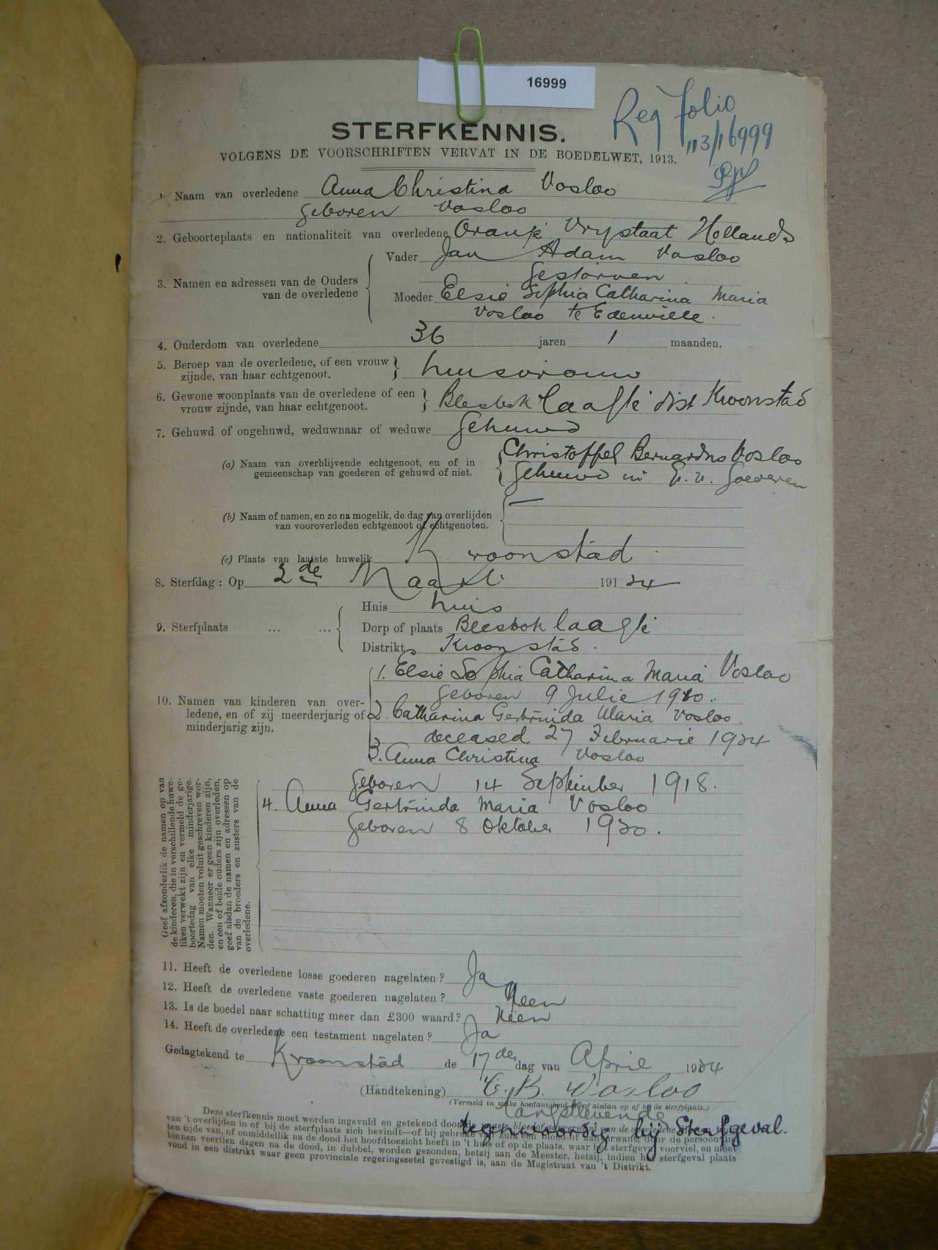 16999
Reg Folio
113/16999
STERFKENNIS.
VOLGENS DE VOORSCHRIFTEN VERVAT IN DE BOEDELWET, 1913.
1. Naam van overledene Anna Christina Vosloo
geboren Vosloo
2. Geboorteplaats en nationaliteit van overledene Oranje Vrijstaat Hollands
3. Namen en adressen van de Ouders van de overledene
Vader Jan Adam Vosloo
gestorven
Moeder Elsie Sophia Catharina Maria
Vosloo te Edenville.
4. Onderdom van overledene 36 jaren 1 maanden.
5. Beroep van de overledene, of een vrouw
zijnde, van haar echtgenoot. huisvrouw
6. Gewone woonplaats van de overledene of een
vrouw zijnde, van haar echtgenoot. Blesbok laagte dist Kroonstad
7. Gehuwd of ongehuwd, weduwnaar of weduwe Gehuwd
(a) Naam van overblijvende echtgenoot, en of in
gemeenschap van goederen of gehuwd of niet.
Christoffel Bernardus Vosloo
Gehuwd in g. v. Goederen
(b) Naam of namen, en zo na mogelik, de dag van overlijden
van vooroverleden echtgenoot of echtgenoten. —
(c) Plaats van laatste huwelik Kroonstad
8. Sterfdag: Op 2de Maart 191 24
9. Sterfplaats ... ...
Huis huis
Dorp of plaats Blesbok laagte
Distrikt Kroonstad.
10. Namen van kinderen van over-
ledene, en of zij meerderjarig of
minderjarig zijn.
1. Elsie Sophia Catharina Maria Vosloo
geboren 9 Julie 1910.
2. Catharina Gertruida Maria Vosloo.
deceased 27 Februarie 1924
3. Anna Christina Vosloo
geboren 14 September 1918.
4. Anna Gertruida Maria Vosloo
geboren 8 Oktober 1920.
Geef afzonderlik de namen op van
de kinderen, die in verschillende huwe-
liken verwekt zijn en vermeld de ge-
boortedag van elke minderjarige.
Namen moeten voluit geschreven wor-
den. Wanneer er geen kinderen zijn,
en een of beide ouders zijn overleden,
geef alsdan de namen en adressen op
van de broeders en zusters van de
overledene.
11. Heeft de overledene losse goederen nagelaten? Ja
12. Heeft de overledene vaste goederen nagelaten? Neen
13. Is de boedel naar schatting meer dan £300 waard? Neen
14. Heeft de overledene een testament nagelaten? Ja
Gedagtekend te Kroonstad de 17de dag van April 1924
(Handtekening) C. B. Vosloo
(Vermeld in welke hoedanigheid
Langstlevende
tegenwoordig bij Sterfgeval.
Deze sterfkennis moet worden ingevuld en getekend door
van 't overlijden in of bij de sterfplaats zich bevindt—of bij gebreke
ten tijde van, of onmiddellik na de dood het hoofdtoezicht heeft in 't huis of op de plaats, waar het sterfgeval voorviel, en moet
binnen veertien dagen na de dood, in dubbel, worden gezonden, hetzij aan de Meester, hetzij, indien het sterfgeval plaats
vond in een distrikt waar geen provinciale regeringszetel gevestigd is, aan de Magistraat van 't Distrikt.